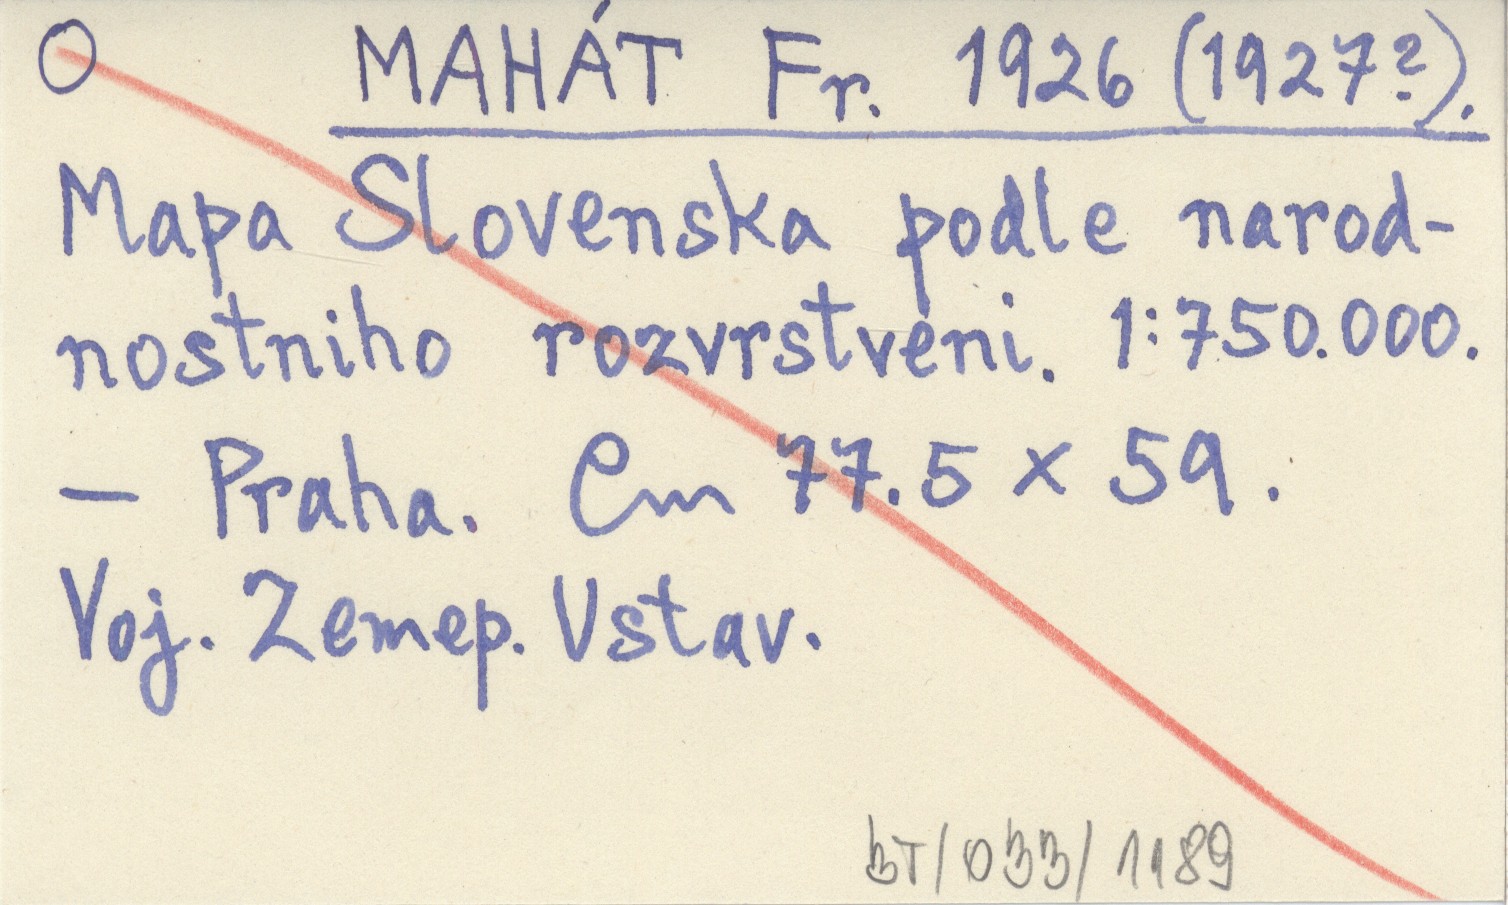 O MAHÁT Fr. 1926 (1927?).
Mapa Slovenska podle narod-
nostniho rozvrstveni. 1:750.000.
— Praha. Cm 77.5 x 59.
Voj. Zemep. Ustav.
BT/033/1189